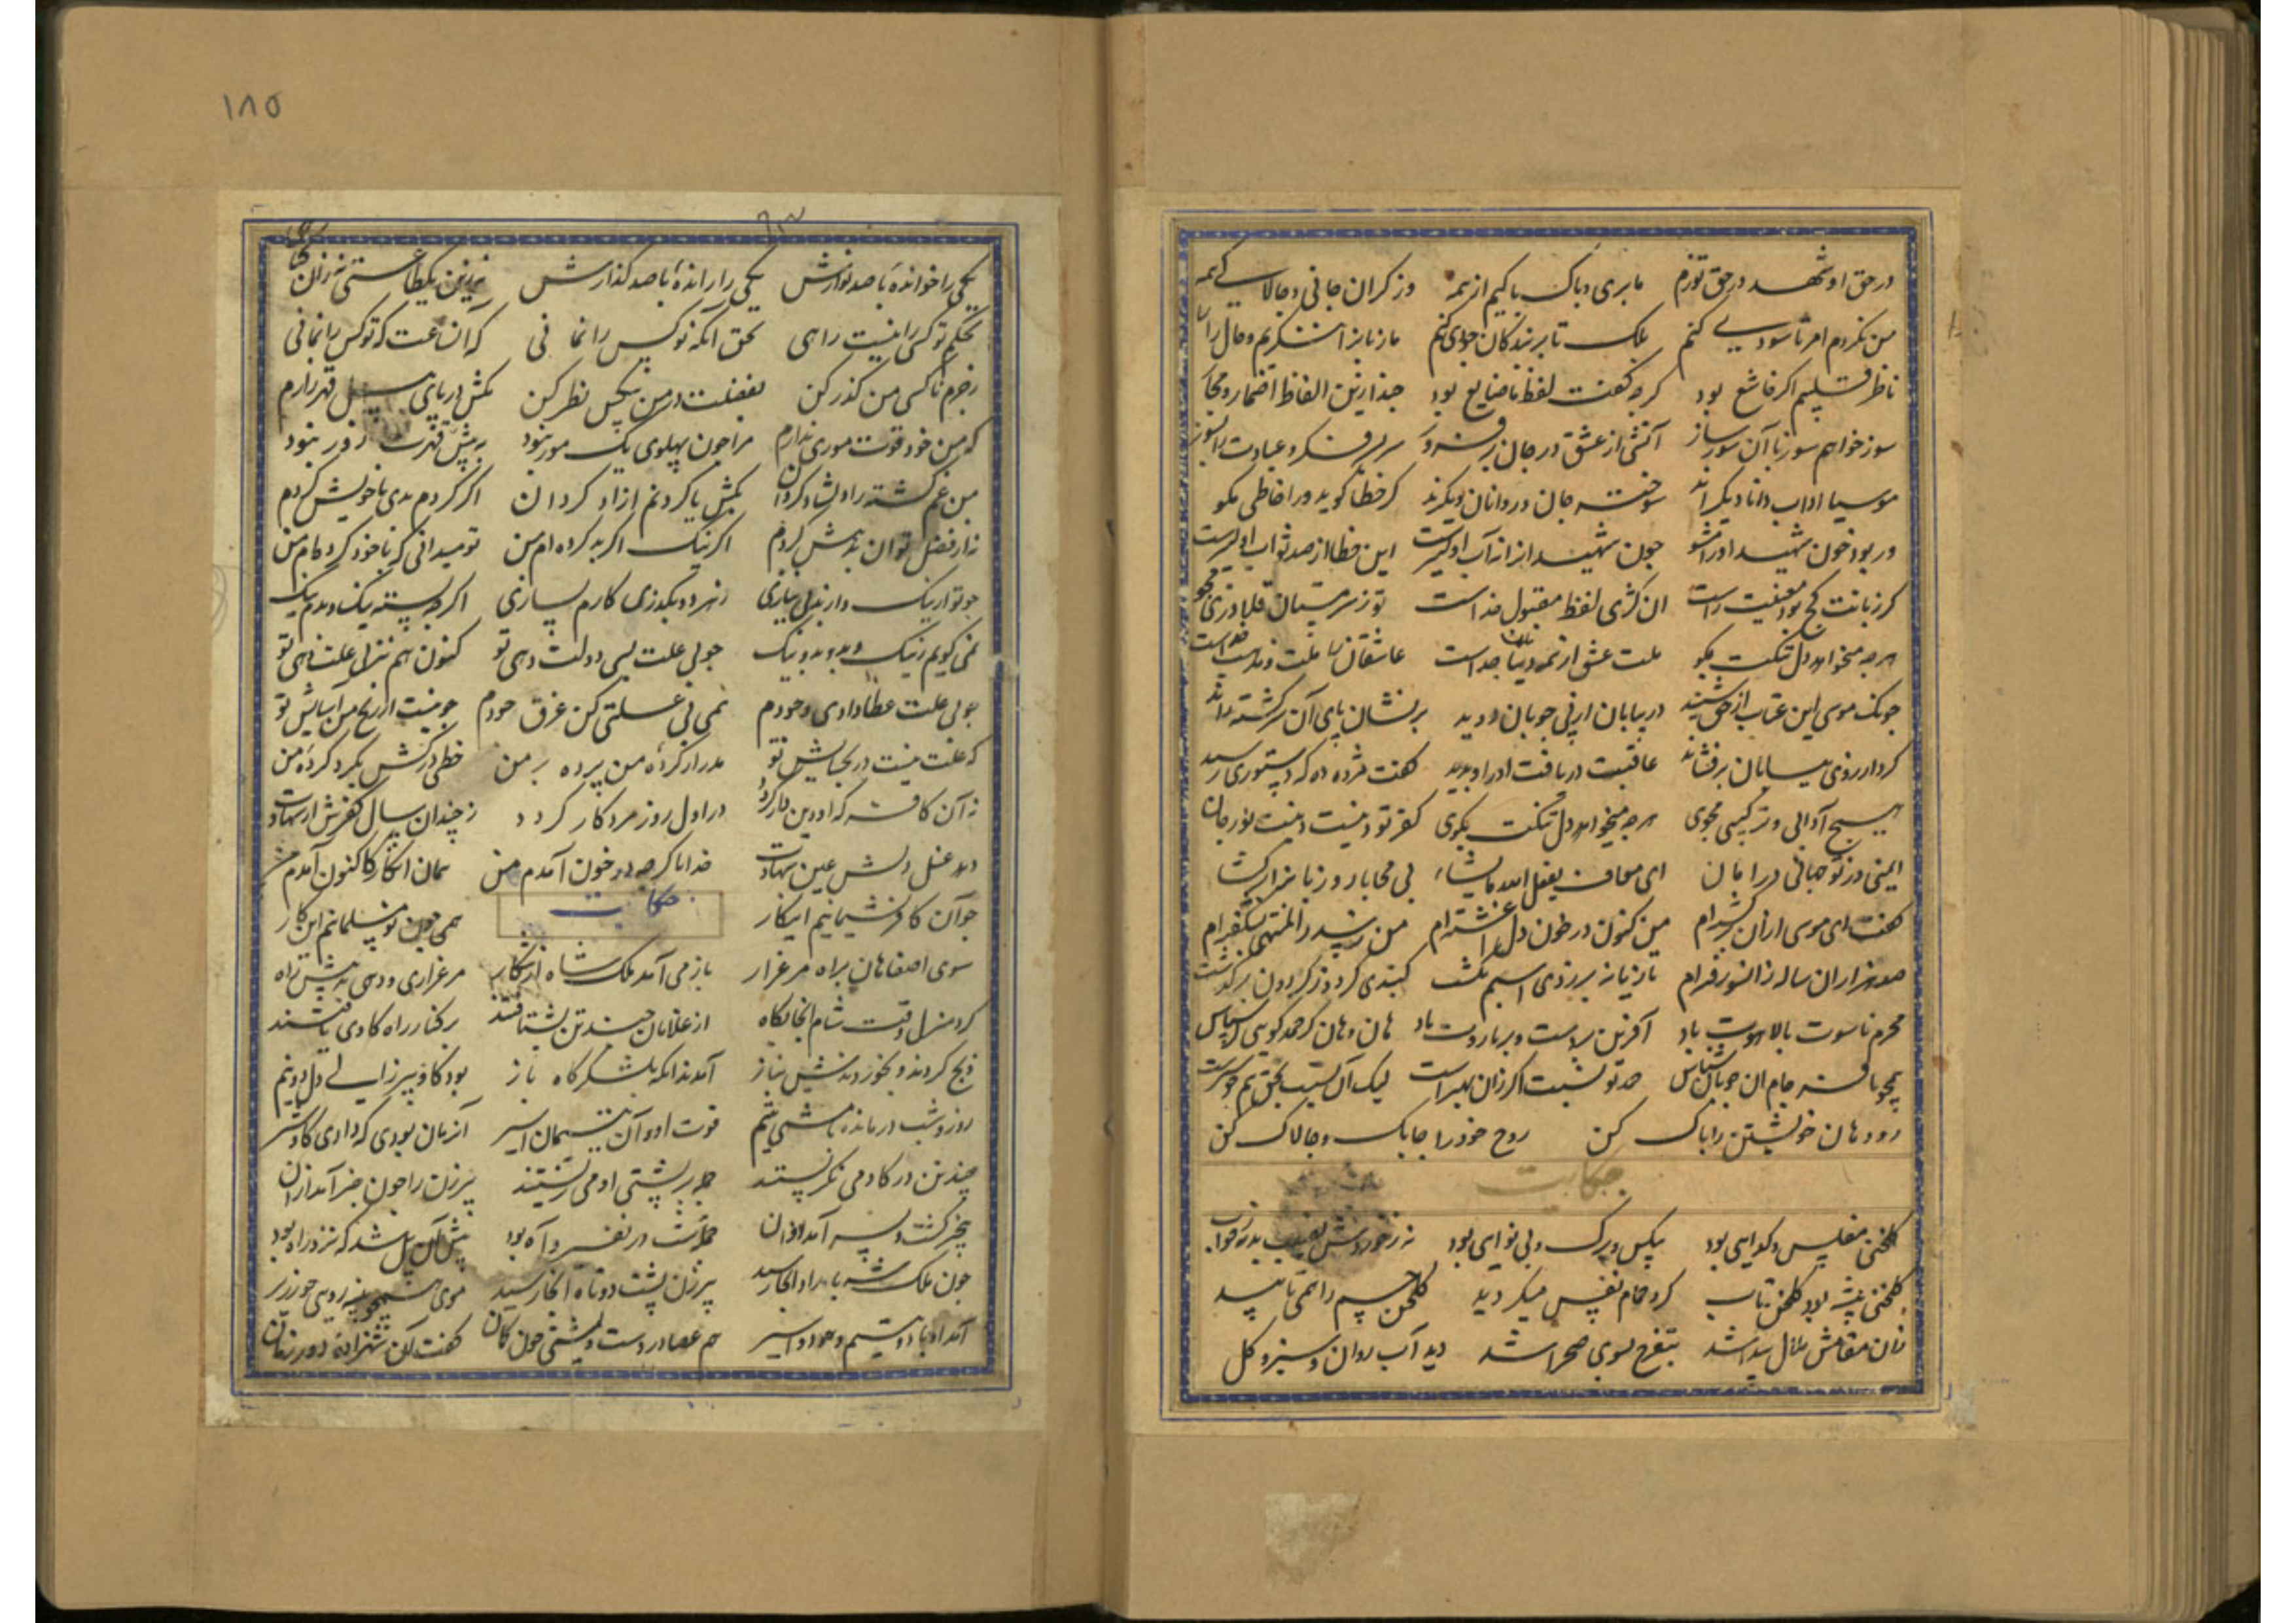 در حق او شهد در حق تو زم ما بری و پاک و ناپاکیم از همه وز کران جانی و چالاکی همه
من نکردم امر تا سودی کنم بلک تا بر بندگان جودی کنم ما زبانرا ننگریم و قال را
ناظر قلبیم اگر خاشع بود گرچه گفت لفظ ناخاضع بود چند ازین الفاظ و اضمار و مجاز
سوز خواهم سوز با آن سوز ساز آتشی از عشق در جان بر فروز سر بسر فکر و عبادت را بسوز
موسیا اداب دانان دیگرند سوخته جان و روانان دیگرند گر خطا گوید ورا خاطی مگو
ور بود خون شهید او را مشو خون شهیدانرا ز آب اولیترست این خطا از صد ثواب اولیترست
گر زبانت کج بود معنیت راست آن کژی لفظ مقبول خداست تو ز سرمستان قلاوزی مجو
هرچه میخواهد دل تنگت بگو ملت عشق از همه دینها جداست عاشقانرا ملت و مذهب خداست
چونک موسی این عتاب از حق شنید در بیابان از پی چوپان دوید بر نشان پای آن سرگشته راند
گرد از روی بیابان برفشاند عاقبت دریافت او را و بدید گفت مژده ده که دستوری رسید
هیچ آدابی و ترتیبی مجوی هرچه میخواهد دل تنگت بگوی کفر تو دینست و دینت نور جان
ایمنی وز تو جهانی در امان ای معاف یفعل الله ما یشاء بی محابا رو زبانرا برگشا
گفت ای موسی از آن بگذشته‌ام من کنون در خون دل آغشته‌ام من ز سدره المنتهی بگذشته‌ام
صد هزاران ساله زانسو رفته‌ام تازیانه برزدی اسبم بگشت گنبدی کرد و ز گردون برگذشت
محرم ناسوت ما لاهوت باد آفرین بر دست و بر بازوت باد هان و هان گر حمد گویی گر سپاس
همچو نافرجام آن چوپان شناس حمد تو نسبت اگر زان بهترست لیک آن نسبت بحق هم ابترست
رو دهان خویشتن را پاک کن روح خود را چابک و چالاک کن
حکایت
گلخنی مفلس و گدایی بود بیکس و برگ و بی نوایی بود
گلخنی پیشه بود گلخن تاب گرد حمام نفس میگردید گلخن جسم را نمی تابید
زان مقامش ملال پیدا شد بتفرج سوی صحرا شد دید آب روان و سبزه و گل
۱۸۵
یکی را خوانده با صد نوازش یکی را رانده با صد گدازش
بحکم تو کسی را نیست راهی بحق آنکه تو کس را نمانی که آن ساعت که تو کس را نمانی
ز جرم ناکسی من گذر کن بفضلت در من بیکس نظر کن مکش در پای پیل قهر زارم
که من خود قوت موری ندارم مرا چون پهلوی یک مور نبود به پیش قهرت زور نبود
من غم گشته را دلشاد گردان بکش یا گردنم ازاد گردان اگر کردم بدی با خویش کردم
نه از فضل تو آن بد بیش کردم اگر نیک اگر بد کرده‌ام من تو میدانی که با خود کرده‌ام من
چو تو از نیک و از بد بی نیازی اگر چه بسته نیک و بدم نیک
نمی گویم ز نیک و بد و بد و نیک چو بی علت بسی دولت دهی تو کنون هم نیز بی علت دهی تو
چو بی علت عطا دادی وجودم نمی فی علتی کن غرق جودم چو نیست از رنج من آسایش تو
که علت نیست در بخشایش تو مدر از کرده من پرده بر من خطی درکش بگرد کرده من
نه آن کافر که او دین دار گردد در اول روز مرد کار گردد ز چندان سال کفرش
دهد غسل دلش عین شهادت خدایا گرچه در خون آمدم من همان انگار کاکنون آمدم من
حکایت
چو آن کافر پشیمانیم اینکار همی چون نو مسلمانیم این کار
سوی اصفاهان براه مرغزار باز می آمد ملک شاه از شکار مرغزاری و دهی بد پیش راه
کرد منزل وقت شام آنجایگاه از غلامان چند تن بشتافتند بر کنار راه گاوی یافتند
ذبح کردند و بخوردندش بناز آمدند آنگه بلشکرگاه باز بود گاو پیرزالی دل دو نیم
روز و شب درمانده با مشتی یتیم قوت او و آن یتیمان اسیر آنزمان بودی که دادی گاو شیر
چند تن در گاو می نگریستند جمله بر پشتی او می زیستند پیرزن را چون خبر آمد از آن
بیخبر گشت و بسر آمد دوان جمله شب در نفیر و آه بود پیش آن پل شد که نزد راه بود
چون ملک شه بامداد آنجا رسید پیرزن پشت دوتاه آنجا رسید موی همچون پنبه رویی چو زریر
آمد او با دو یتیم و دو اسیر هم عصا در دست و پشتی چون کمان گفت کای شهزاده